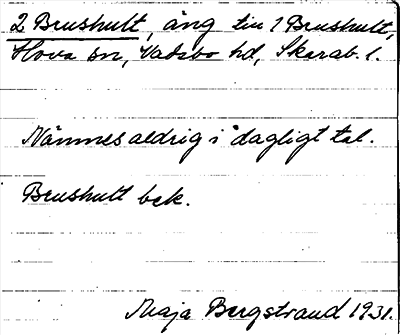 2 Brushult, äng till 1 Brushult,
Hova sn, Vadsbo hd, Skarab. l.
Nämnes aldrig i dagligt tal.
Brushult bek.
Maja Bergstrand 1931.